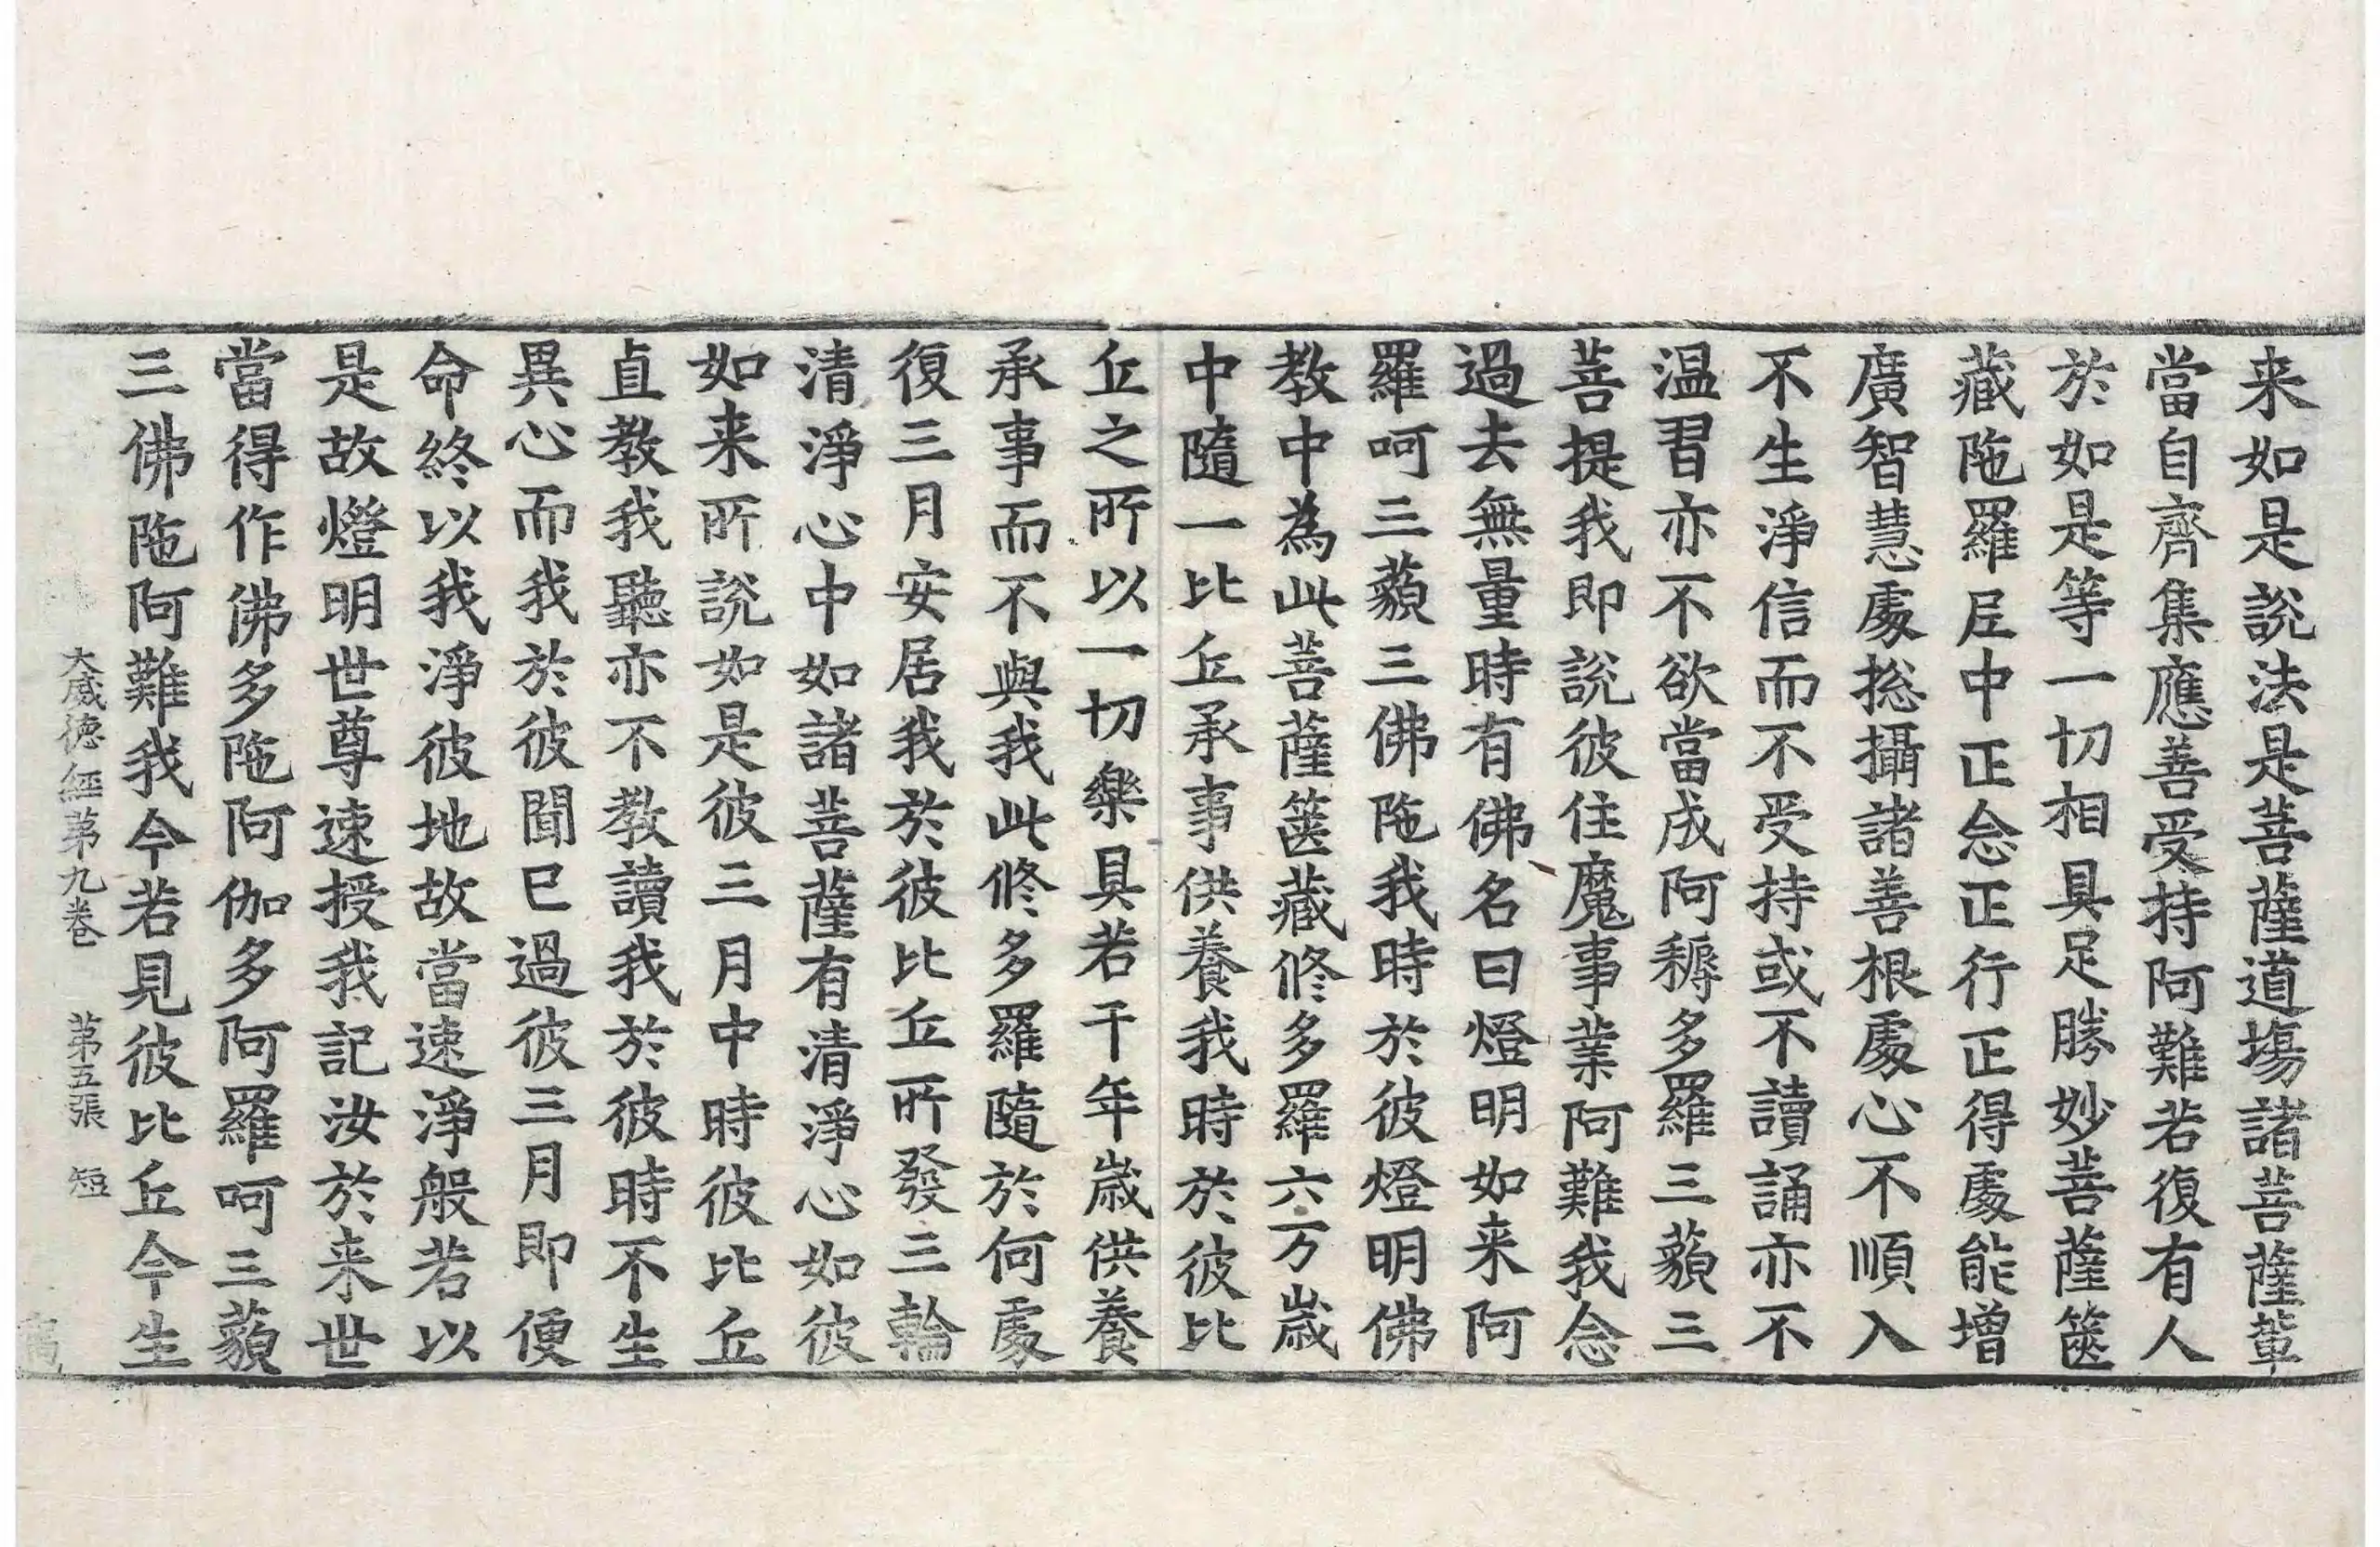 来如是說法是菩薩道場諸菩薩軰
當自齊集應善受持阿難若復有人
於如是等一切相具足勝妙菩薩篋
藏陁羅𡰱中正念正行正得處能增
廣智慧處揔攝諸善根處心不順入
不生淨信而不受持或不讀誦亦不
温習亦不欲當成阿耨多羅三藐三
菩提我即說彼住魔事業阿難我念
過去無量時有佛名曰燈明如来阿
羅呵三藐三佛陁我時於彼燈明佛
教中為此菩薩篋藏修多羅六万歲
中隨一比丘承事供養我時於彼比
丘之所以一切樂具若干年歲供養
承事而不與我此修多羅隨於何處
復三月安居我於彼比丘所發三輪
清淨心中如諸菩薩有清淨心如彼
如来所說如是彼三月中時彼比丘
直教我聽亦不教讀我於彼時不生
異心而我於彼聞已過彼三月即便
命終以我淨彼地故當速淨般若以
是故燈明世尊速授我記汝於来世
當得作佛多陁阿伽多阿羅呵三藐
三佛陁阿難我今若見彼比丘今生
大威德經第九卷 第五張 短